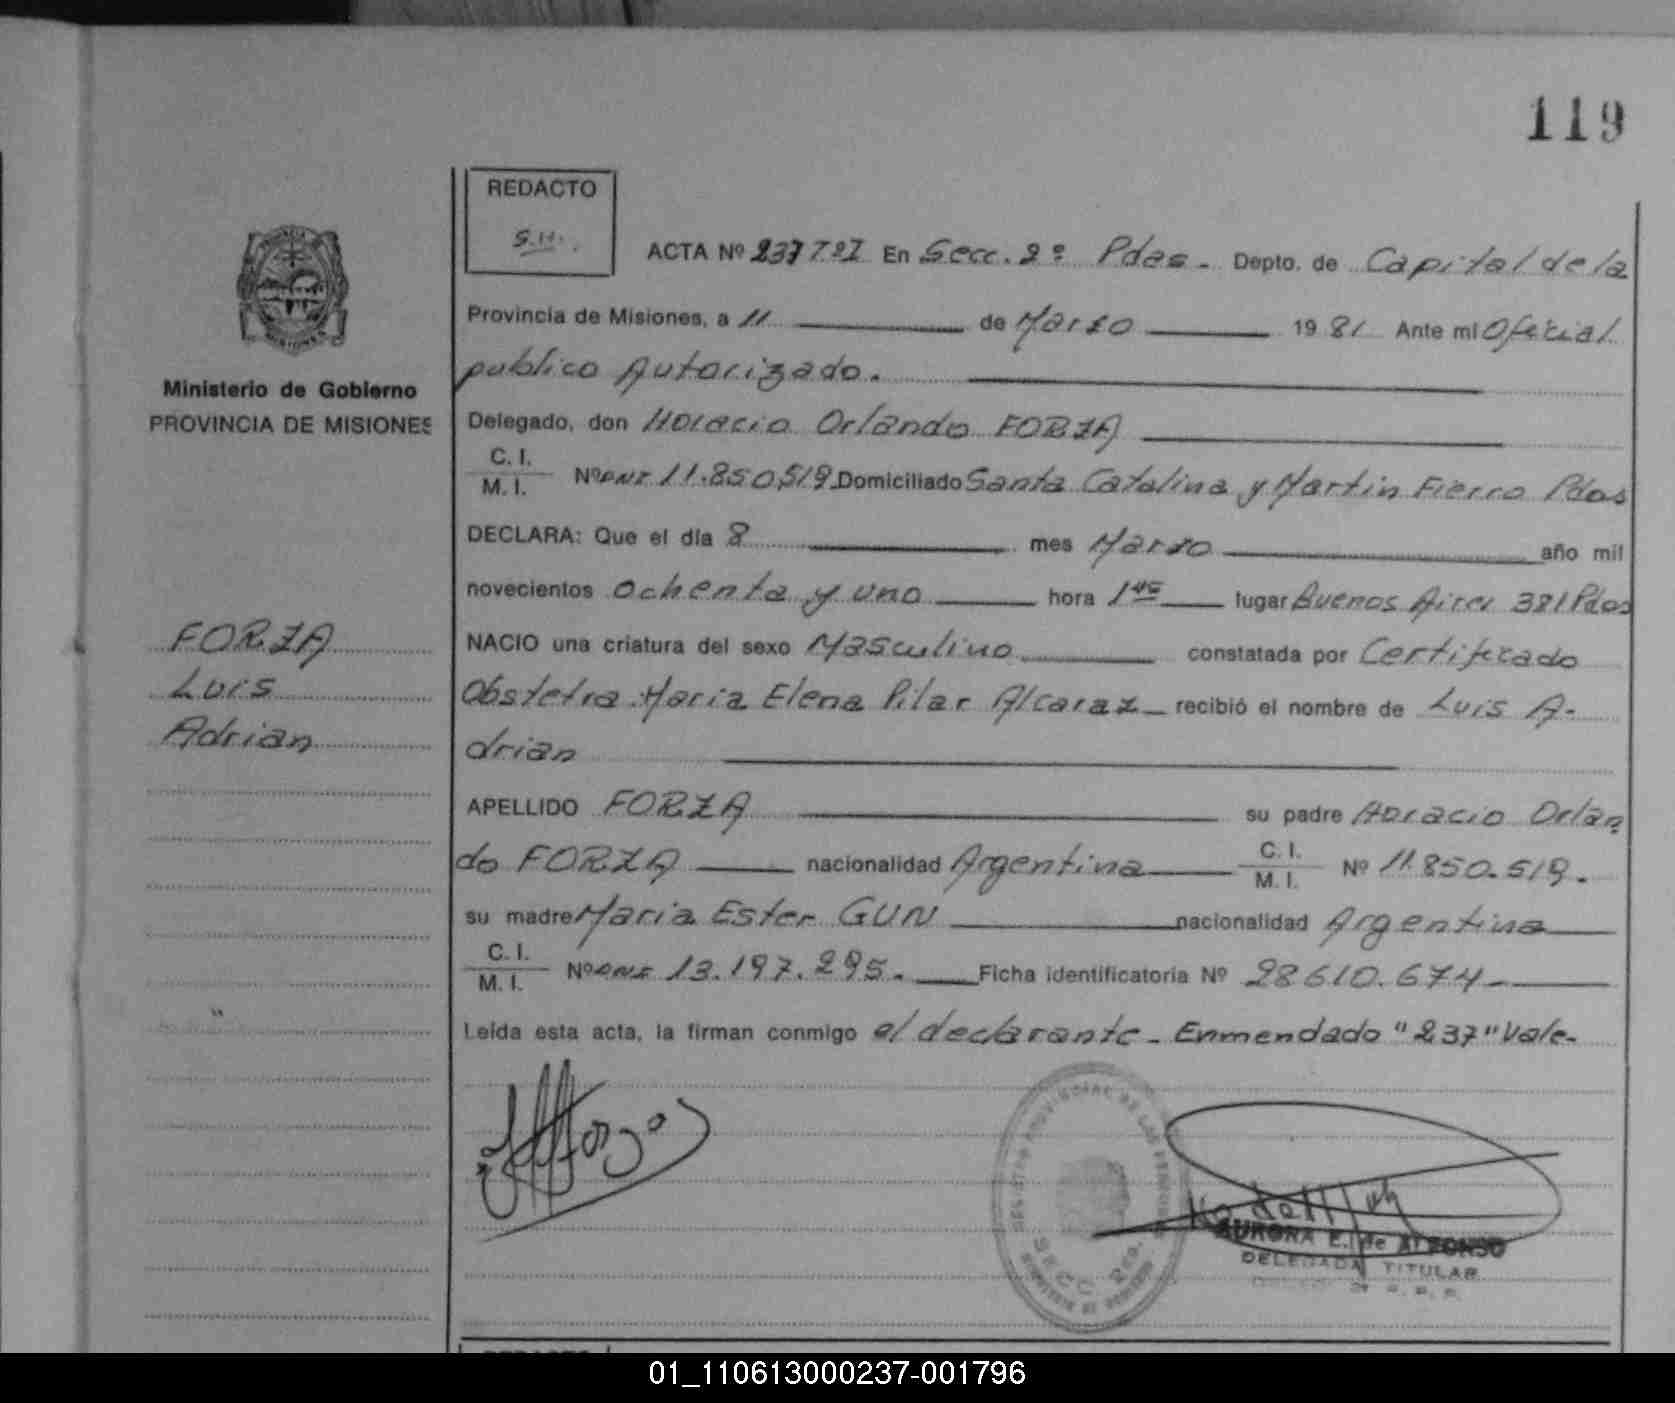 119
REDACTO
S.H.
ACTA Nº 237 T.2I En Secc. 2º Pdas. Depto. de Capital de la
Provincia de Misiones, a 11 de Marzo 1981 Ante mi Oficial
publico Autorizado.
Ministerio de Gobierno
PROVINCIA DE MISIONES
Delegado, don Horacio Orlando FORZA
C. I.
M. I. Nº DNI 11.850.519 Domiciliado Santa Catalina y Martin Fierro Pdas
DECLARA: Que el día 8 mes Marzo año mil
novecientos ochenta y uno hora 1 lugar Buenos Aires 381 Pdas
FORZA
Luis
Adrian
NACIO una criatura del sexo Masculino constatada por Certificado
Obstetra Maria Elena Pilar Alcaraz recibió el nombre de Luis A-
drian
APELLIDO FORZA su padre Horacio Orlan
do FORZA nacionalidad Argentina C. I.
M. I. Nº 11.850.519.
su madre Maria Ester GUN nacionalidad Argentina
C. I.
M. I. Nº DNI 13.197.295. Ficha identificatoria Nº 28610.674
Leída esta acta, la firman conmigo el declarante. Enmendado "237" Vale.
Forza
SECC. 2da.
AURORA E. de ALFONSO
DELEGADA TITULAR
01_110613000237-001796